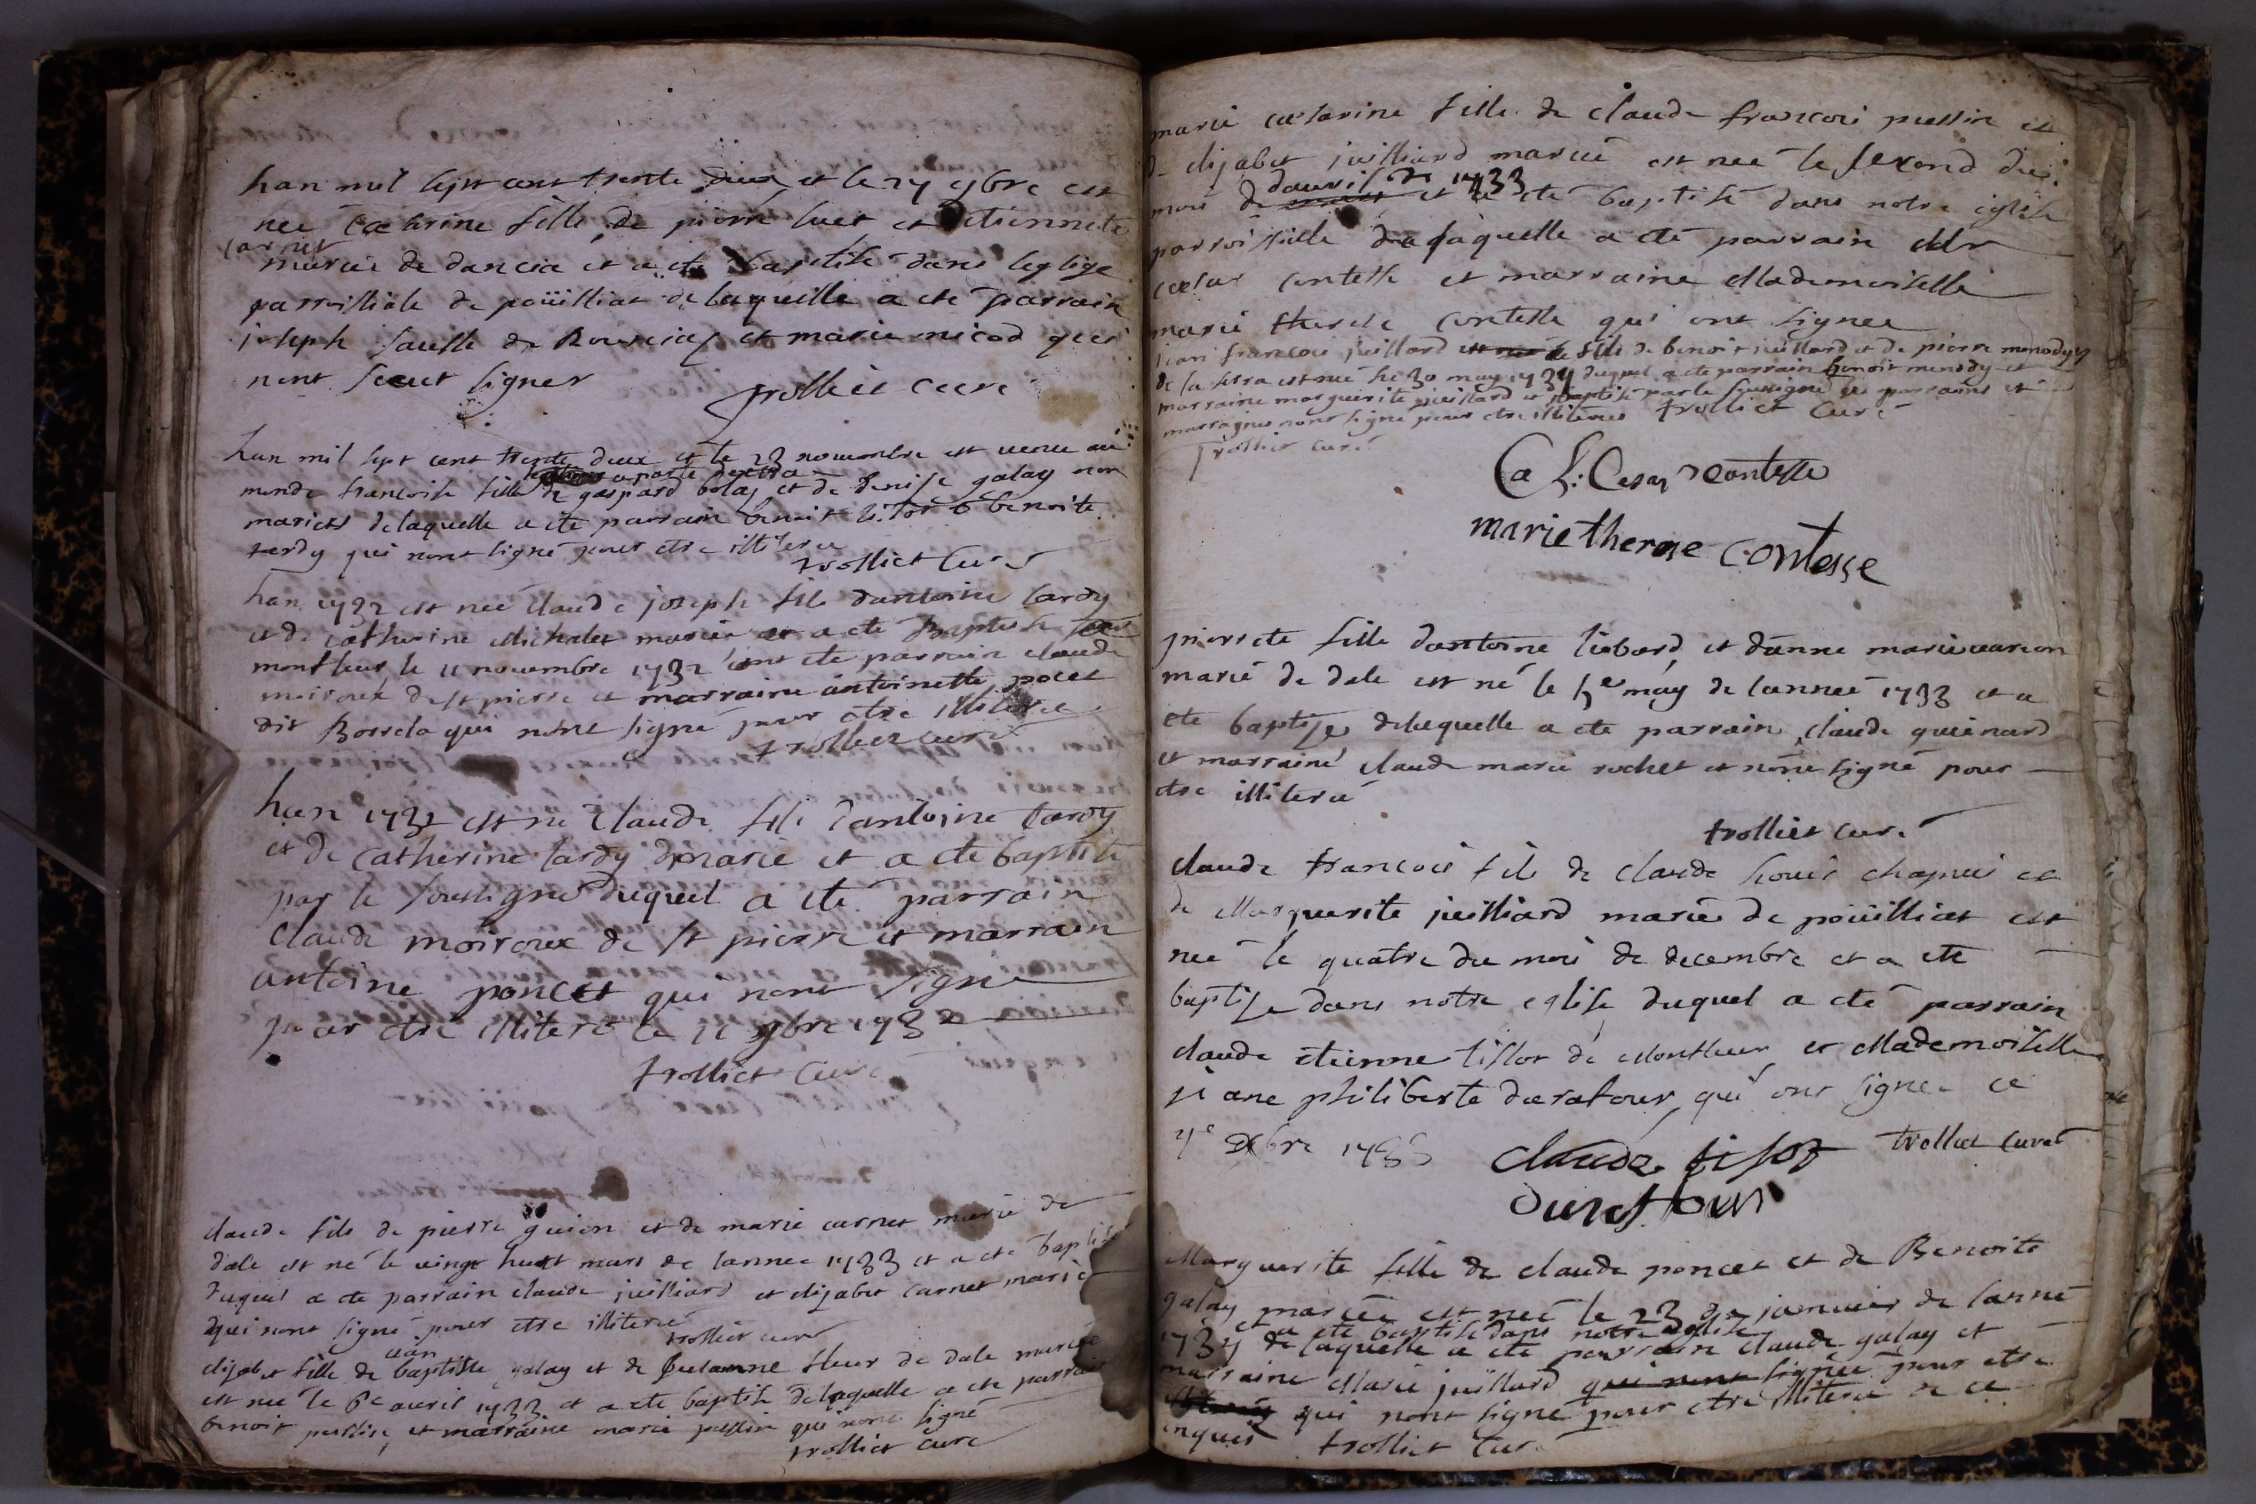 han mil sept cent trente deux et le 27 9bre est
nee caterine fille de pierre luet et etiennete
carnet
mariés de dancia et a eté baptisé dans leglise
parroissiale de poüilliat de laquelle a eté parrain
joseph de et marie nicod qui
nont sceut signer trolliet curé
han mil sept cent trente deux et le 23 novembre est venu au
monde francoise fille de gaspard bolay et de denise galay non
mariés delaquelle a eté parrain benoit tisot & benoite
tardy qui nont signé pour etre illiteré
trolliet curé
han 1732 est neé claude joseph fils dantoine tardy
et de catherine Michalet marié et a eté Baptisé
montfleur le 11 novembre 1732 ont eté parrain claude
moiroux de st pierre et marraine antoinette pocet
dit Borrela qui nont signé pour etre illiteré
trolliet curé
han 1732 est né claude fils dantoine tardy
et de catherine tardy marié et a eté baptisé
par le soussigné duquel a eté parrain
claude moiroux de st pierre et marrain
antoine poncet qui nont signé
pour etre illiteré ce 11 9bre 1732
trolliet curé
claude fils de pierre guion et de marie carnet marié de
dale est né le vingt huit mars de lannee 1733 et a eté baptisé
duquel a eté parrain claude juilliard et elizabet carnet marié
qui nont signé pour etre illiteré
trolliet curé
elizabet fille de jean baptiste galay et de fleur de dale mariée
est nee le 6e avril 1733 et a eté baptisé delaquelle a eté parrain
benoit pussin et marraine marie pussin qui nont signé
trolliet curé
marie catarine fille de claude francois pussin et
d elizabet juilliard marié est neé le second du
mois de davril de 1733 et a eté baptisé dans notre eglise
parroissialle de laquelle a eté parrain Mr
cesar contesse et marraine Mademoiselle
marie therese contesse qui ont signee
jean francois juillard fils de benoit juillard et de pierre monody
de la serra est né le 30 may 1734 duquel a eté parrain benoit monody et
marraine marguerite juillard et baptisé par le soussigné les parrains et
marragnes nont signé pour etre illiterés trolliet curé
trolliet curé
Cesar contesse
marie therese contesse
pierrete fille dantoine liobard et danne marie
marié de dale est né le 5e may de lanneé 1733 et a
eté baptisee delaquelle a eté parrain claude guienard
et marrainé claude marie rochet et nont signé pour
etre illiteré
trolliet curé
claude francois fils de claude louis chapuis et
de Marguerite juilliard marié de poüilliat est
neé le quatre du mois de decembre et a eté
baptisé dans notre eglise duquel a eté parrain
claude etienne tissot de Montfleur et Mademoiselle
jeane philiberte duratour qui ont signee ce
4e Xbre 1733 claude tisot trolliet curé
duratour
Marguerite fille de claude poncet et de Benoite
galay mariée est neé le 23 de janvier de lanné
1734 et a eté baptisé dans notre eglise
de laquelle a eté parrain claude galay et
marraine Marie juillard qui nont signée pour etre
qui nont signé pour etre illiteré de ce
enquis trolliet curé